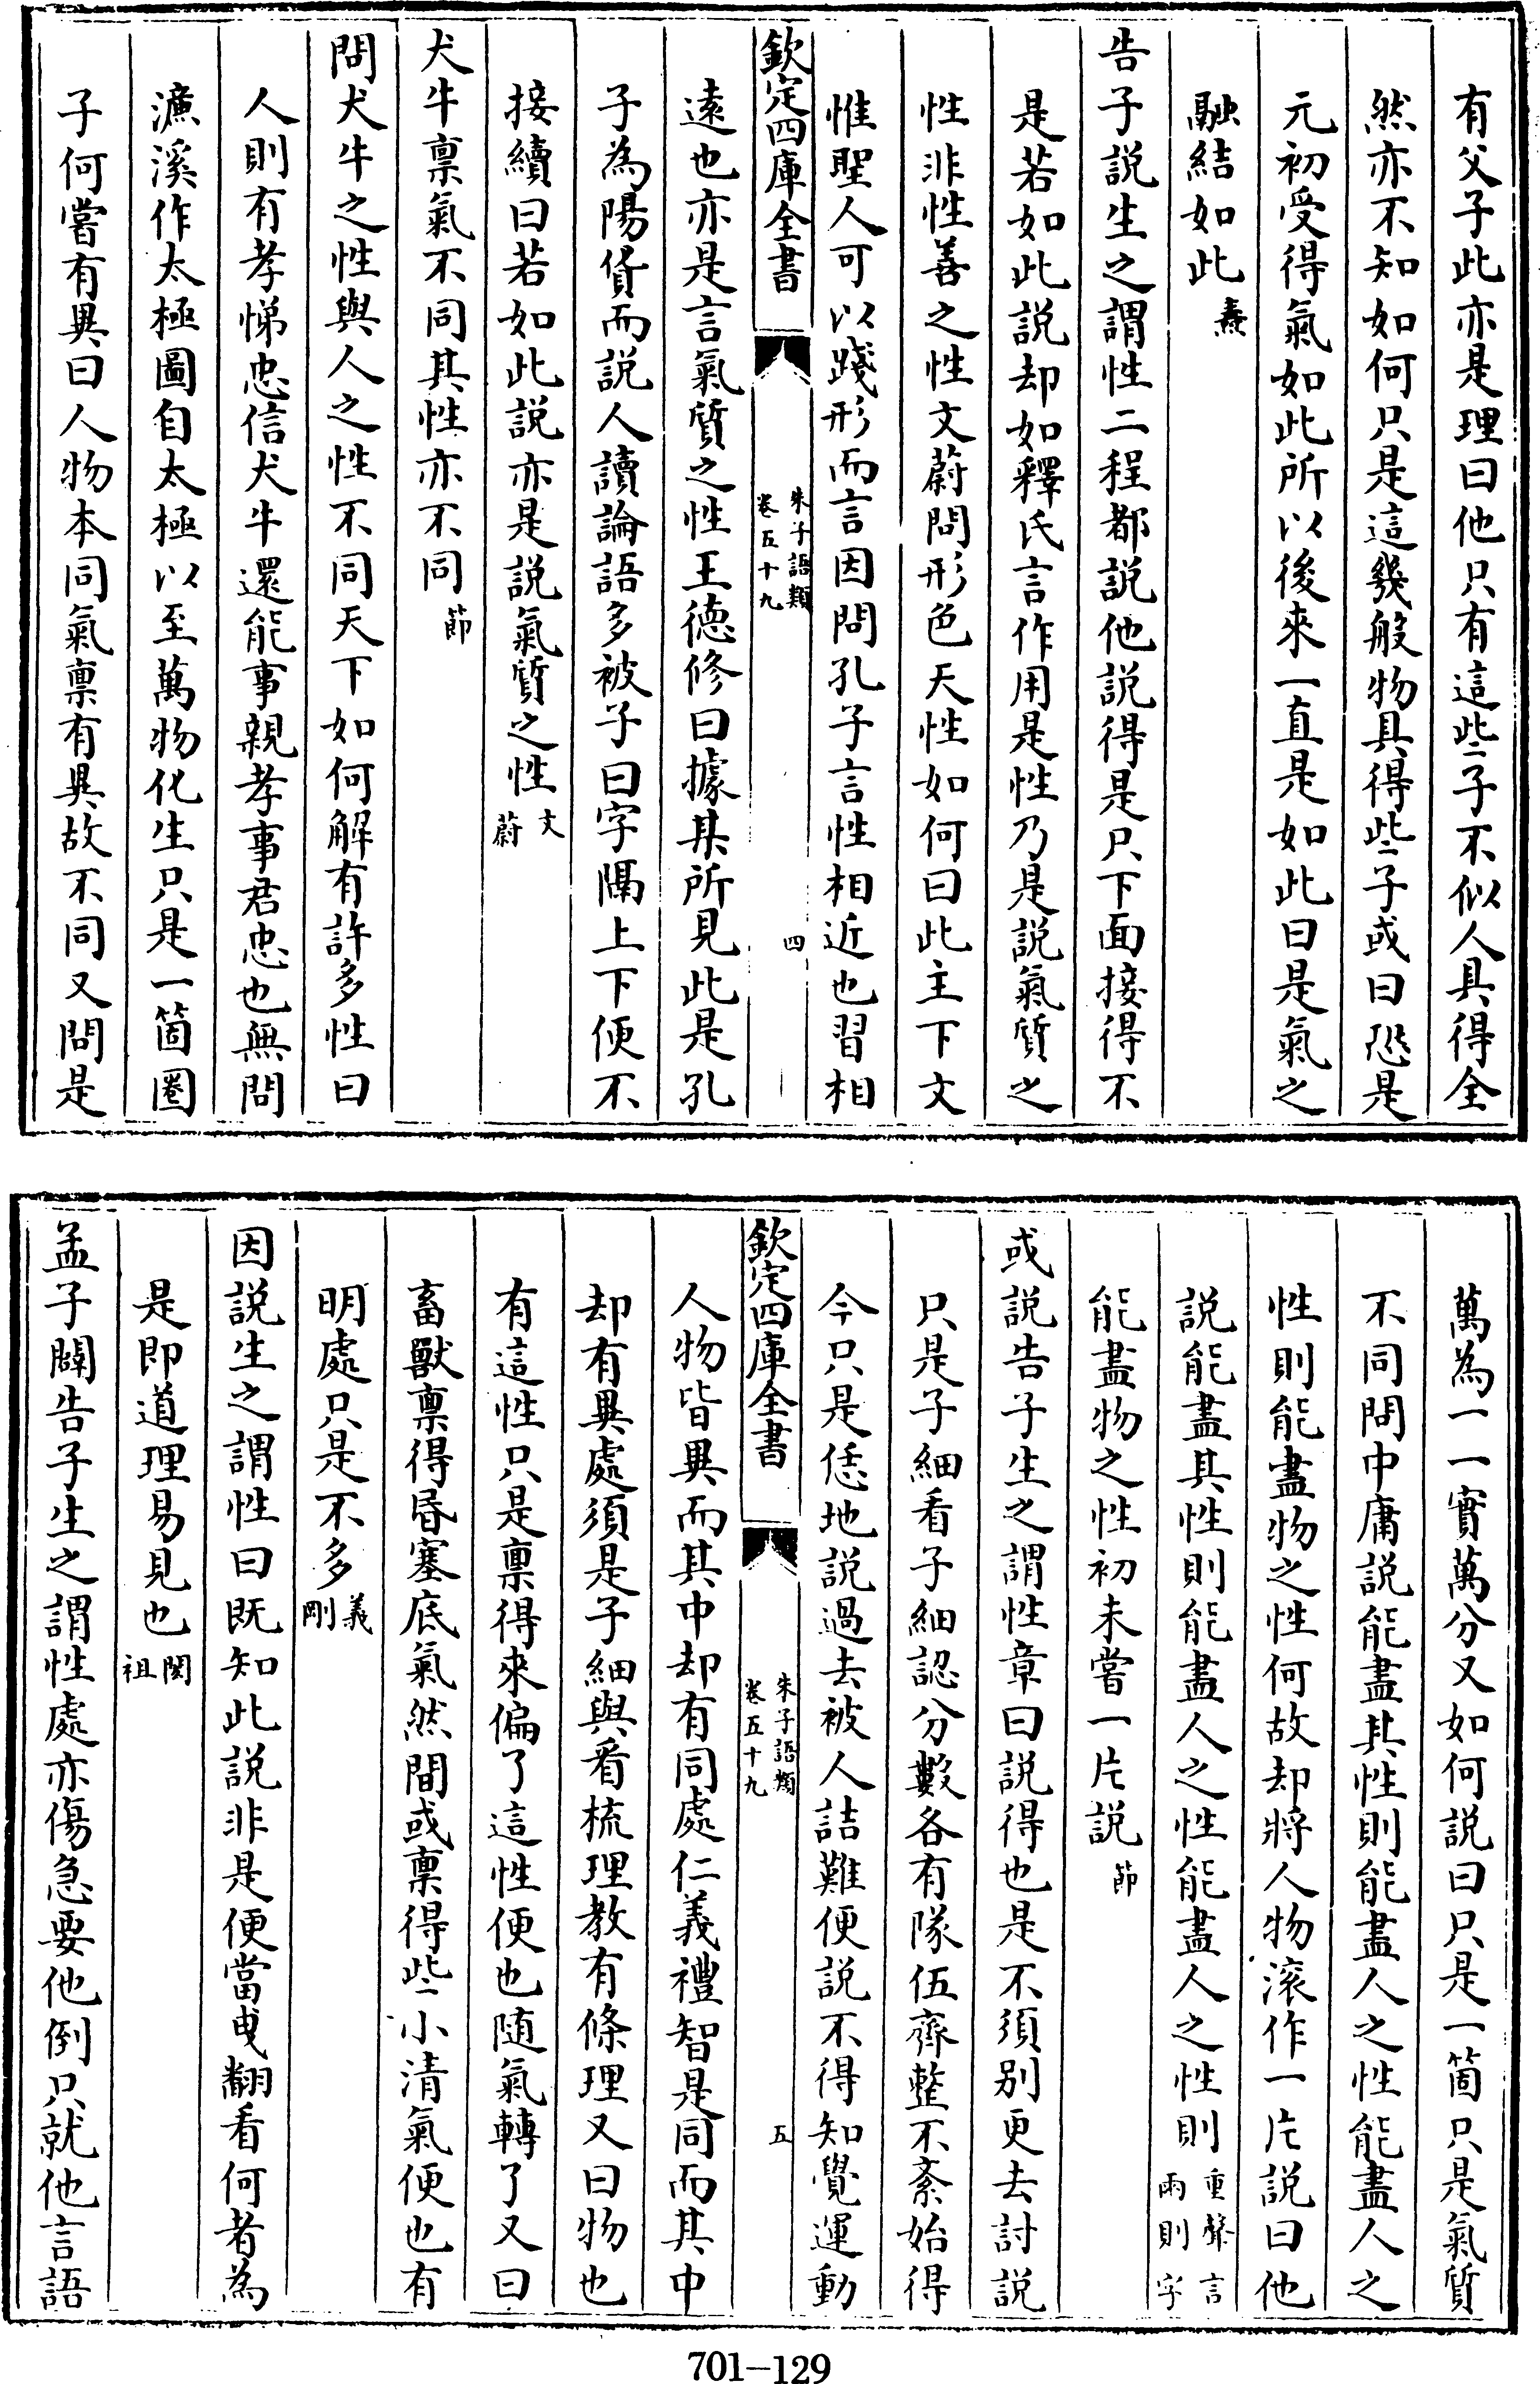 有父子此亦是理曰他只有這些子不似人具得全
然亦不知如何只是這幾般物具得些子或曰恐是
元初受得氣如此所以後來一直是如此曰是氣之
融結如此燾
告子說生之謂性二程都說他說得是只下面接得不
是若如此說却如釋氏言作用是性乃是說氣質之
性非性善之性文蔚問形色天性如何曰此主下文
惟聖人可以踐形而言因問孔子言性相近也習相
欽定四庫全書
朱子語類
卷五十九
四
遠也亦是言氣質之性王德修曰據某所見此是孔
子為陽貨而說人讀論語多被子曰字隔上下便不
接續曰若如此說亦是說氣質之性文蔚
犬牛禀氣不同其性亦不同節
問犬牛之性與人之性不同天下如何解有許多性曰
人則有孝悌忠信犬牛還能事親孝事君忠也無問
濂溪作太極圖自太極以至萬物化生只是一箇圈
子何嘗有異曰人物本同氣禀有異故不同又問是
萬為一一實萬分又如何說曰只是一箇只是氣質
不同問中庸說能盡其性則能盡人之性能盡人之
性則能盡物之性何故却將人物滚作一片說曰他
說能盡其性則能盡人之性能盡人之性則重聲言兩則字
能盡物之性初未嘗一片說節
或說告子生之謂性章曰說得也是不須别更去討說
只是子細看子細認分數各有隊伍齊整不紊始得
今只是恁地說過去被人詰難便說不得知覺運動
欽定四庫全書
朱子語類
卷五十九
五
人物皆異而其中却有同處仁義禮智是同而其中
却有異處須是子細與看梳理教有條理又曰物也
有這性只是禀得來偏了這性便也随氣轉了又曰
畜獸禀得昏塞底氣然間或禀得些小清氣便也有
明處只是不多義剛
因說生之謂性曰既知此說非是便當曳翻看何者為
是即道理易見也閎祖
孟子闢告子生之謂性處亦傷急要他倒只就他言語
701-129